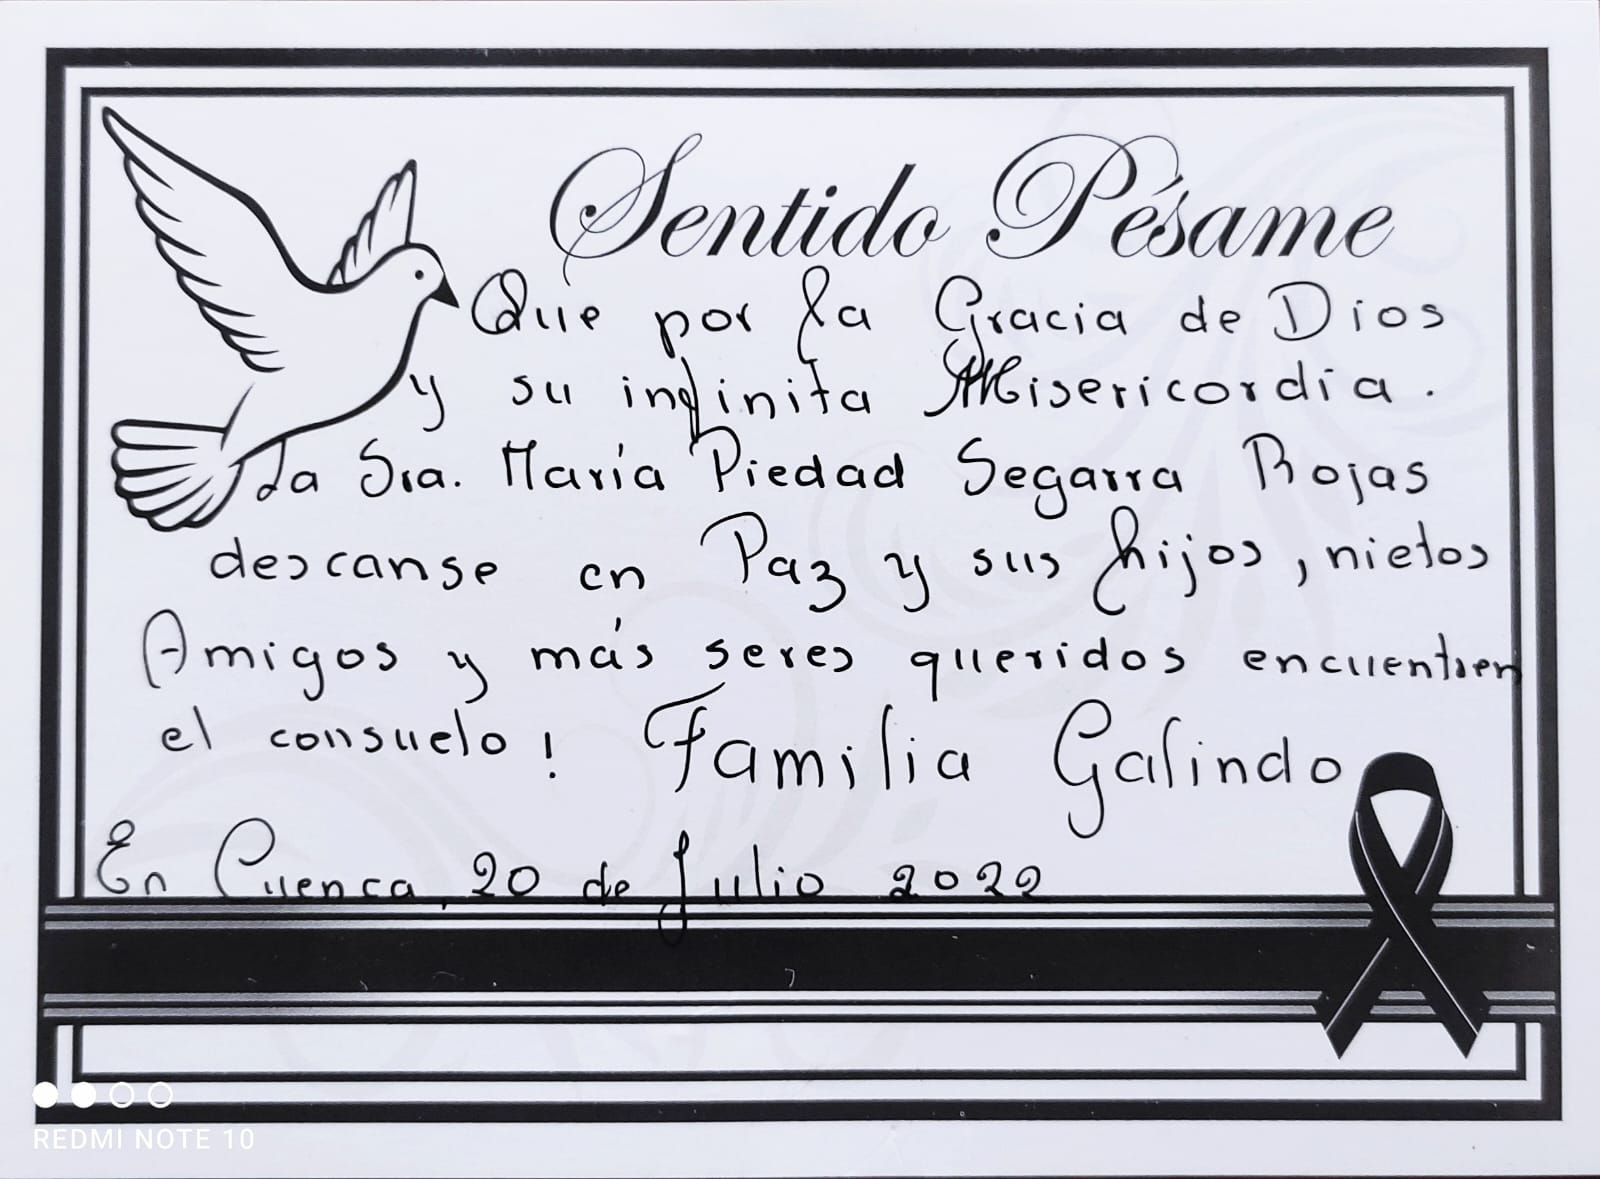 Sentido Pésame
Que por la Gracia de Dios
y su infinita Misericordia.
La Sra. María Piedad Segarra Rojas
descanse en Paz y sus hijos, nietos
Amigos y más seres queridos encuentren
el consuelo! Familia Galindo
En Cuenca, 20 de Julio 2022
REDMI NOTE 10